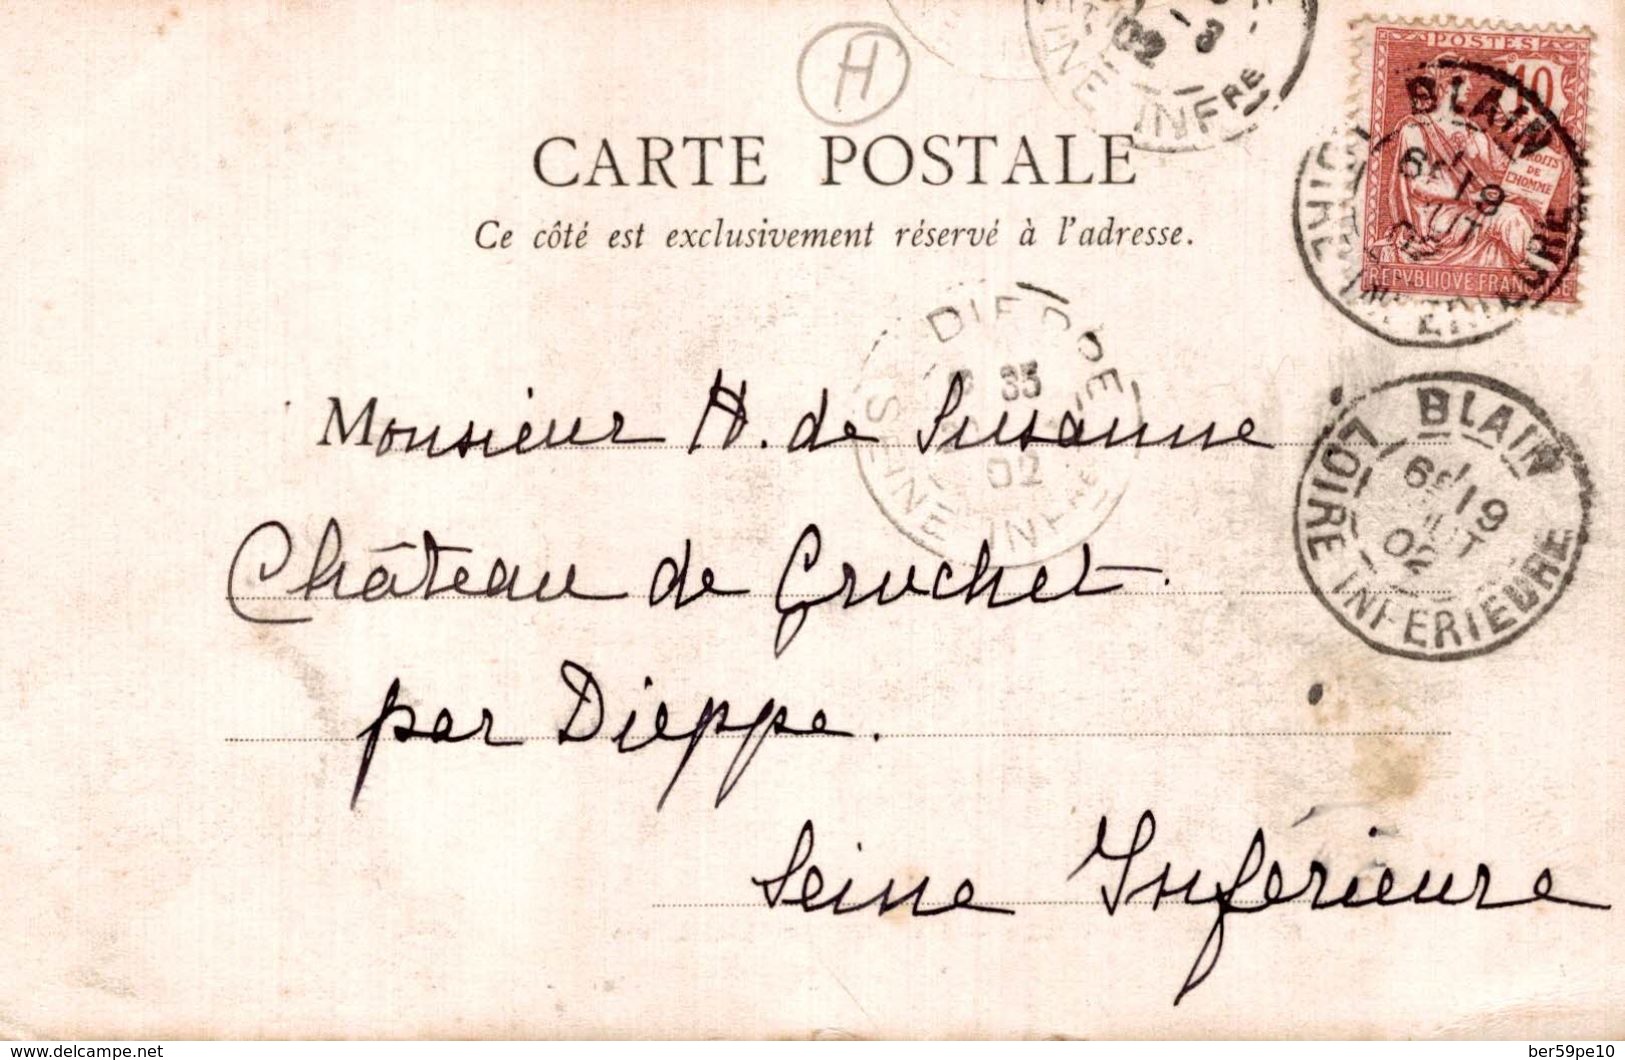 H
02
INFRE
POSTES
10
DROITS
DE
L'HOMME
REPVBLIQVE FRANÇAISE
BLAIN
19
CARTE POSTALE
Ce côté est exclusivement réservé à l'adresse.
DIEPPE
35
02
SEINE INFRE
Monsieur H. de Susanne
Château de Gruchet
par Dieppe.
Seine Inférieure
BLAIN
19
02
LOIRE INFERIEURE
delcampe.net
ber59pe10